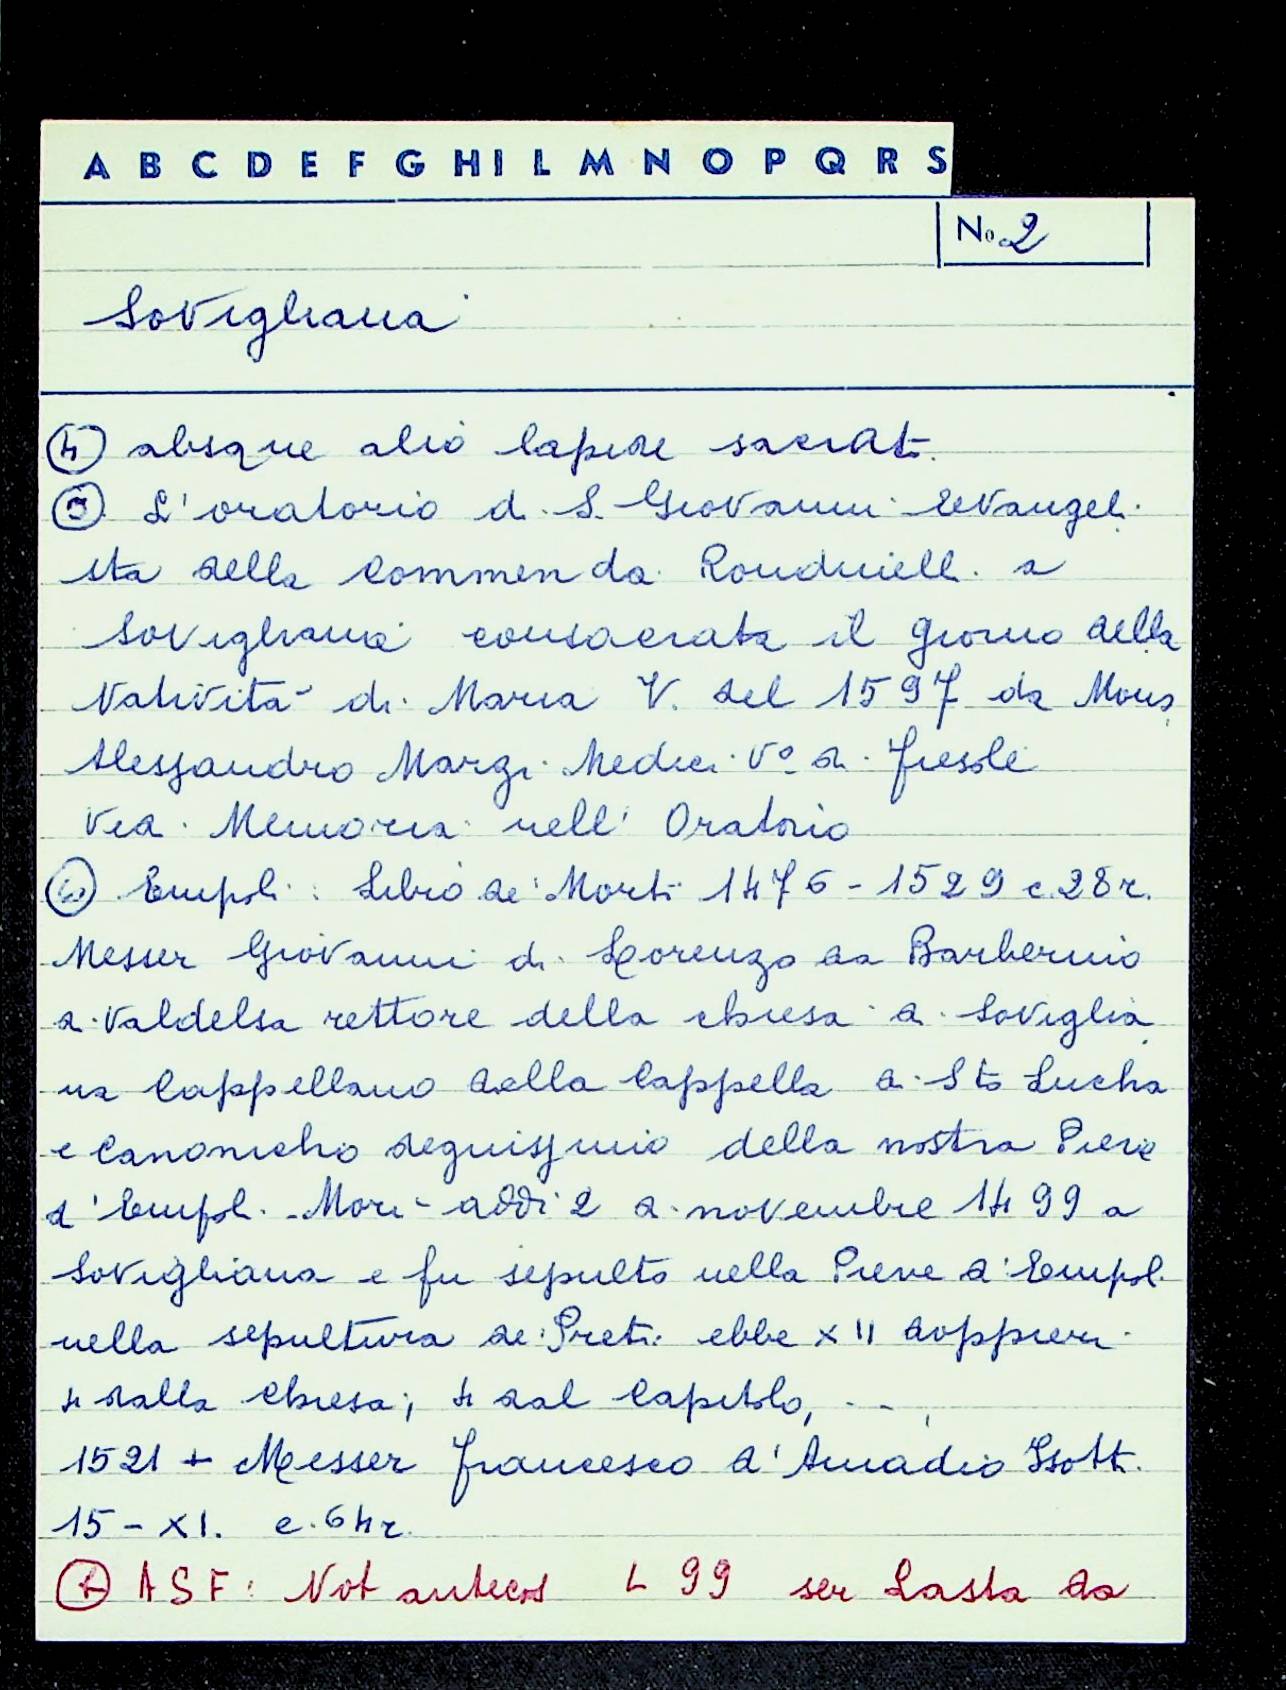 A B C D E F G H I L M N O P Q R S
No. 2
Sovigliana
④ absque alio lapide sacrat.
⑤ L'oratorio di S. Giovanni Evangeli
sta della Commenda Rondinelli a
Sovigliana consacrata il giorno della
Natività di Maria V. del 1597 da Mons.
Alessandro Marzi Medici Vº di Fiesole
Vedi Memoria nell' Oratorio
⑥ Empoli: Libro de' Morti 1476 - 1529 c. 28 r.
Messer Giovanni di Lorenzo da Barberino
di Valdelsa rettore della chiesa di Soviglia
na Cappellano della Cappella di Sto Lucha
e Canonicho degnissimo della nostra Pieve
d'Empoli. Morì addì 2 di novembre 1499 a
Sovigliana e fu sepulto nella Pieve d'Empoli
nella sepultura de' Preti ebbe XII doppieri
4 dalla Chiesa; 4 dal Capitolo, - - ,
1521 + Messer Francesco d'Amadio
15 - XI. c. 64 r.
ASF: Not antecos L 99 ser Lasta da